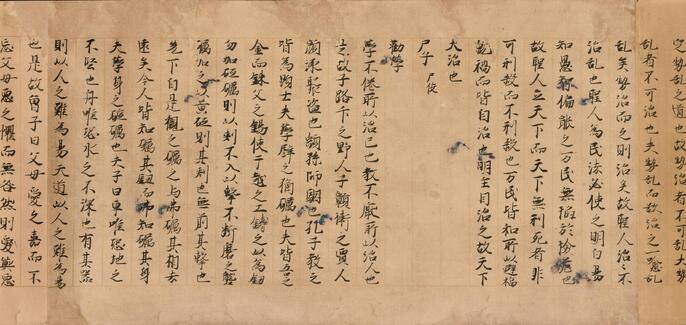 定勢乱之道也故勢治者不可乱大勢
乱者不可治也夫勢乱而欲治之愈乱
乱矣勢治而之則治矣故聖人治〻不
治乱也聖人為民法必使之明白易
知愚智偏能之万民無陥於險危也
故聖人立天下而天下無刑死者非
可刑殺而不刑殺也万民皆知所以避禍
就福而皆自治也明主因治之故天下
大治也
尸子 尸佼
勸學
學不倦所以治己也教不厭所以治人也
是故子路卞之野人子貢衛之賈人
顔涿聚盗也顓孫師駔也孔子教之
皆為顯士夫學譬之猶礪也夫昆吾之
金而銖父之錫使干越之工鑄之以為劔
勿加砥礪則以刺不入以擊不断磨之礱
礪加之以黄砥則其刺也無前其擊也
無下自是觀之礪之与弗礪其相去
遠矣今人皆知礪其劔而弗知礪其身
夫學身之砥礪也夫子曰車唯恐地之
不堅也舟唯恐水之不深也有其器
則以人之難為易夫道以人之難為易
也是故曾子曰父母愛之喜而不
忘父母惡之懼而無咎然則愛與惡